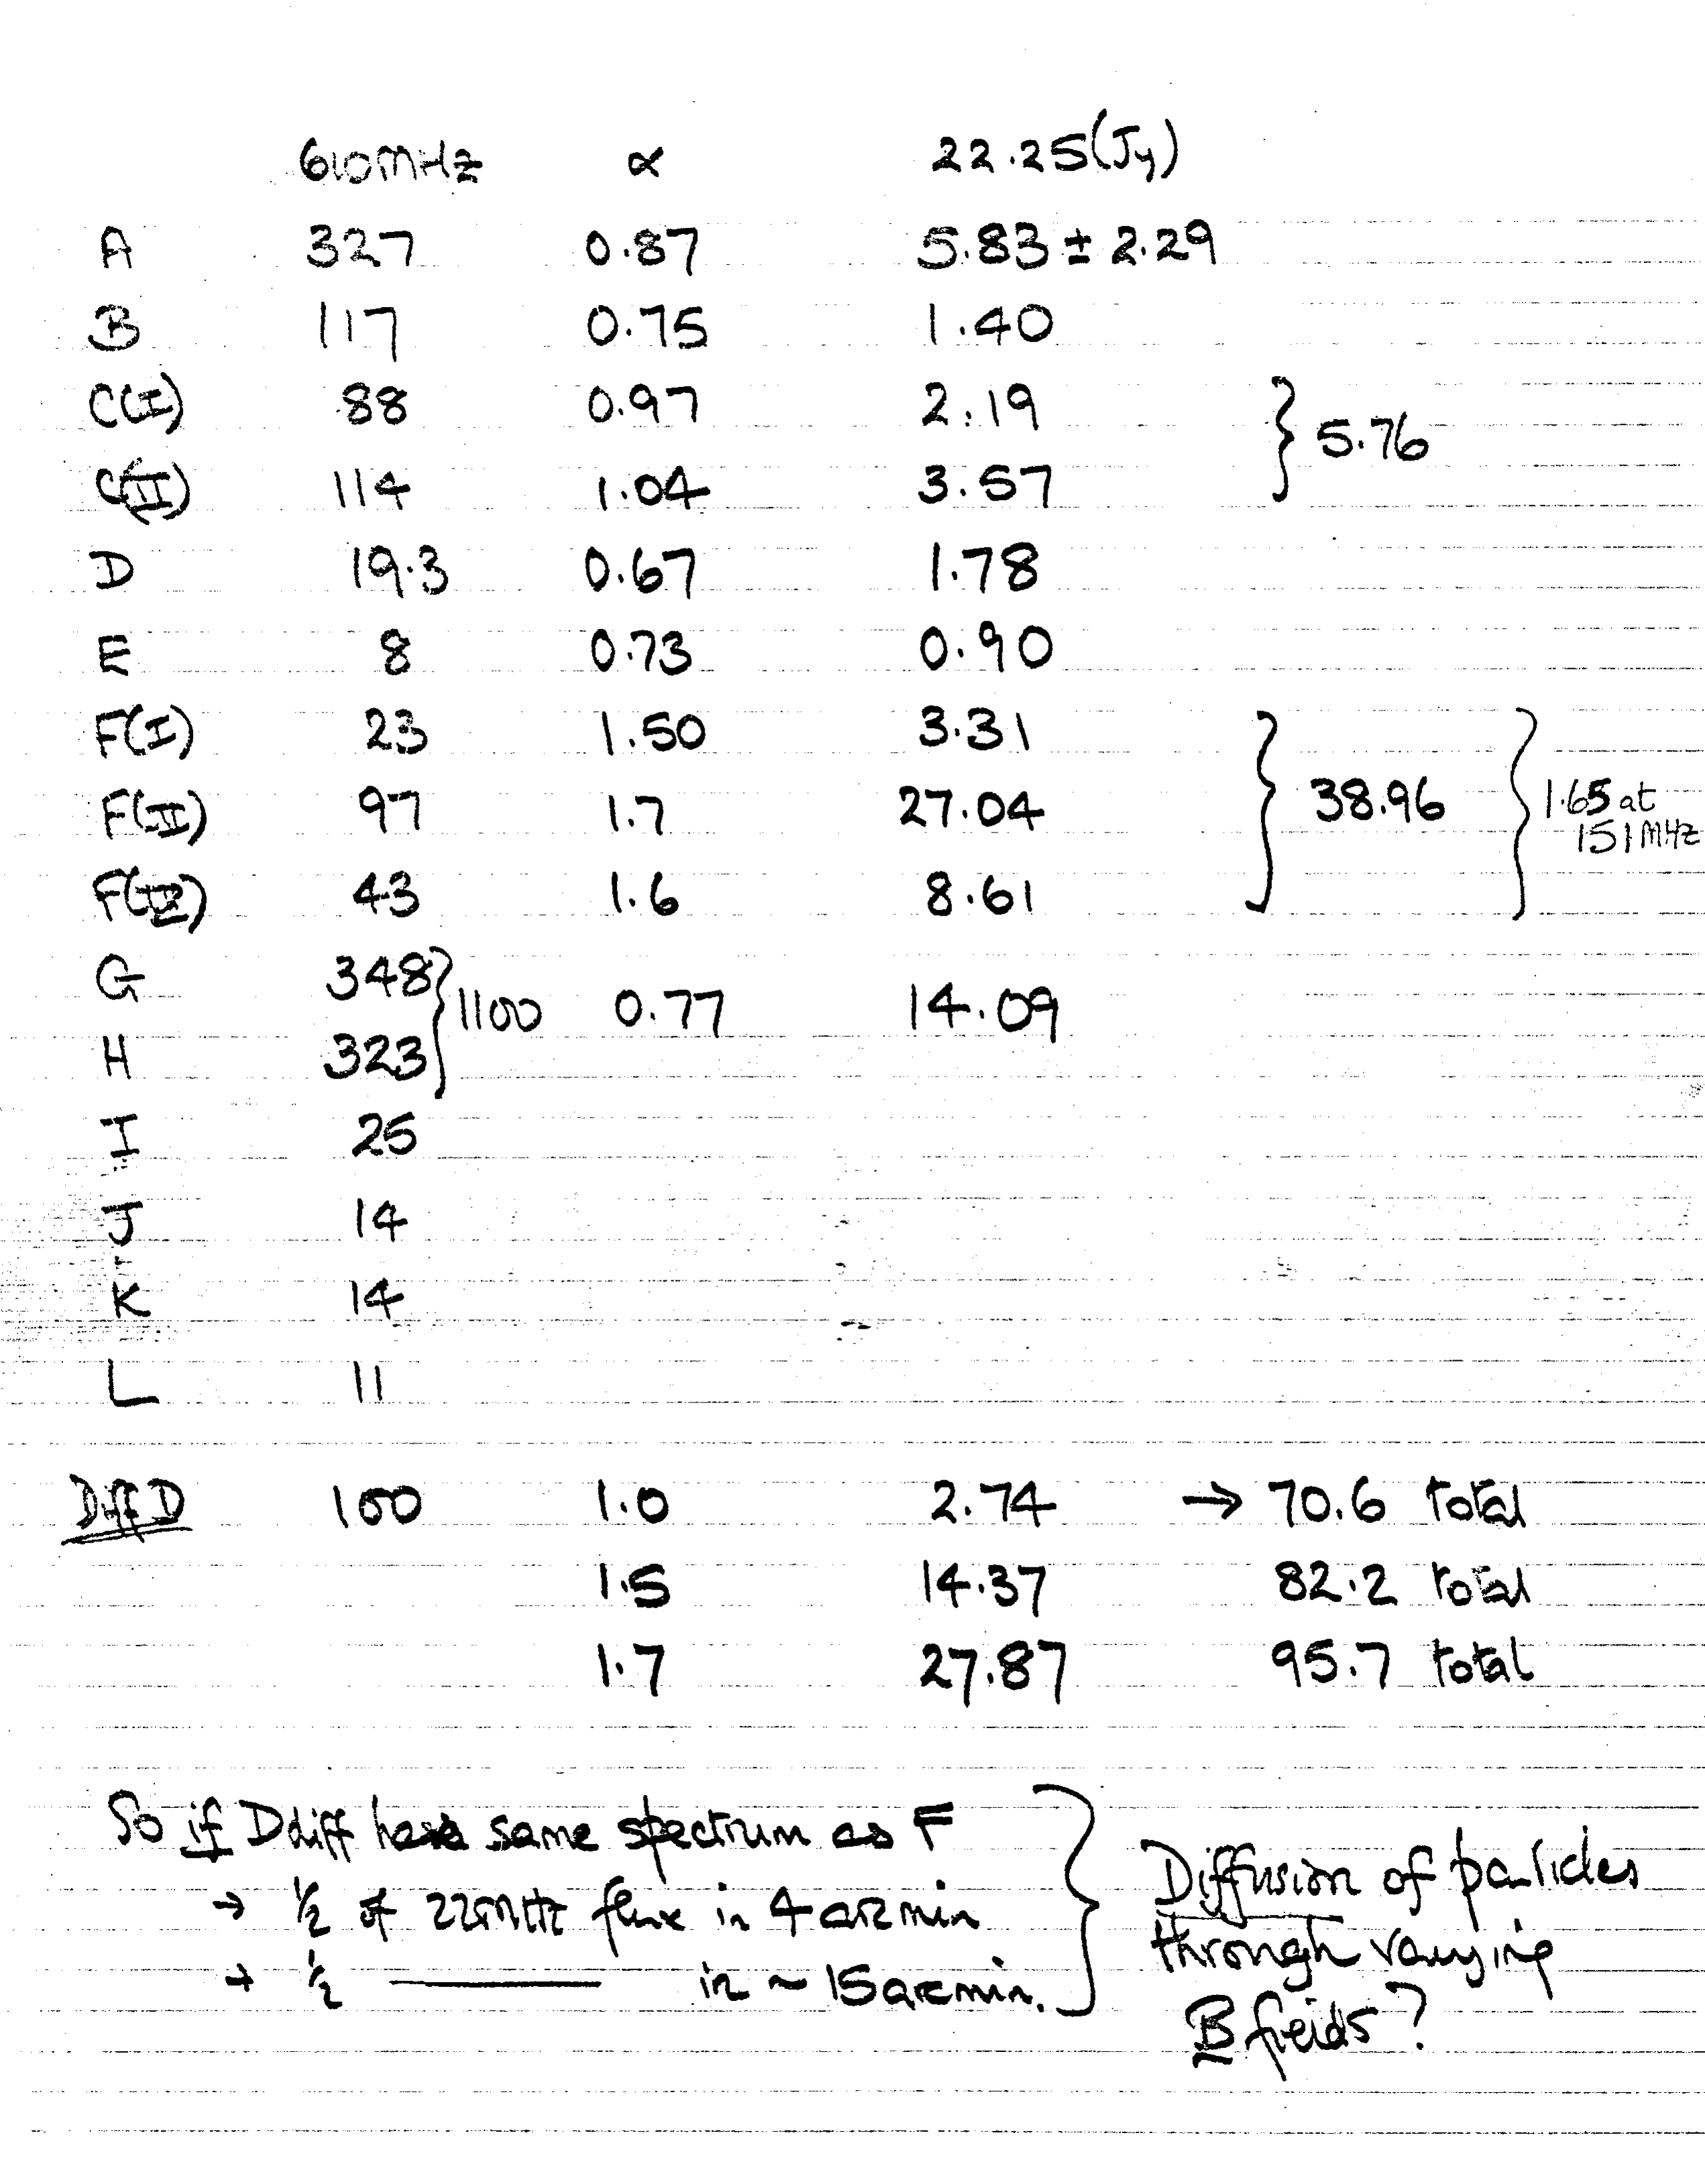 610MHz α 22.25(Jy)
A 327 0.87 5.83 ± 2.29
B 117 0.75 1.40
C(I) 88 0.97 2.19
} 5.76
C(II) 114 1.04 3.57
D 19.3 0.67 1.78
E 8 0.73 0.90
F(I) 23 1.50 3.31
F(II) 97 1.7 27.04 } 38.96 } 1.65 at
151MHz
F(III) 43 1.6 8.61
G 348
} 1100 0.77 14.09
H 323
I 25
J 14
K 14
L 11
Diff D 100 1.0 2.74 → 70.6 total
1.5 14.37 82.2 total
1.7 27.87 95.7 total
So if Ddiff has same spectrum as F
→ ½ of 22MHz flux in 4 arcmin
→ ½ ——— in ~ 15 arcmin.
} Diffusion of particles
through varying
B fields?